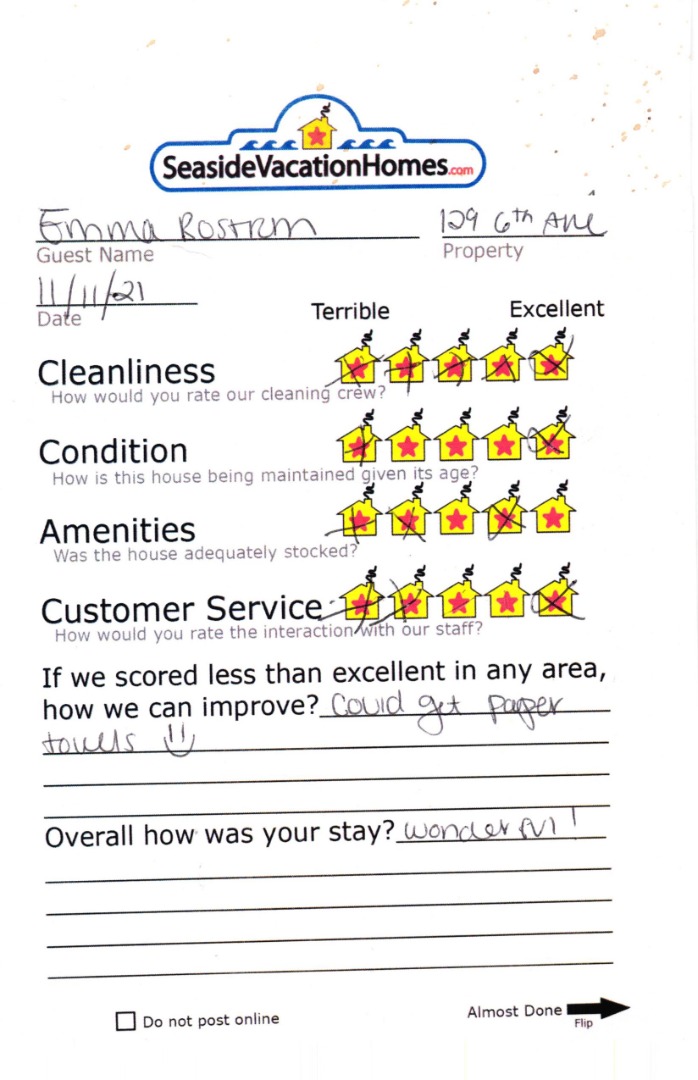 SeasideVacationHomes.com
Emma Rostrm 129 6th Ave
Guest Name Property
11/11/21
Date
Terrible Excellent
Cleanliness
How would you rate our cleaning crew?
Condition
How is this house being maintained given its age?
Amenities
Was the house adequately stocked?
Customer Service
How would you rate the interaction with our staff?
If we scored less than excellent in any area,
how we can improve? Could get paper
towels
Overall how was your stay? wonderful!
Do not post online
Almost Done
Flip